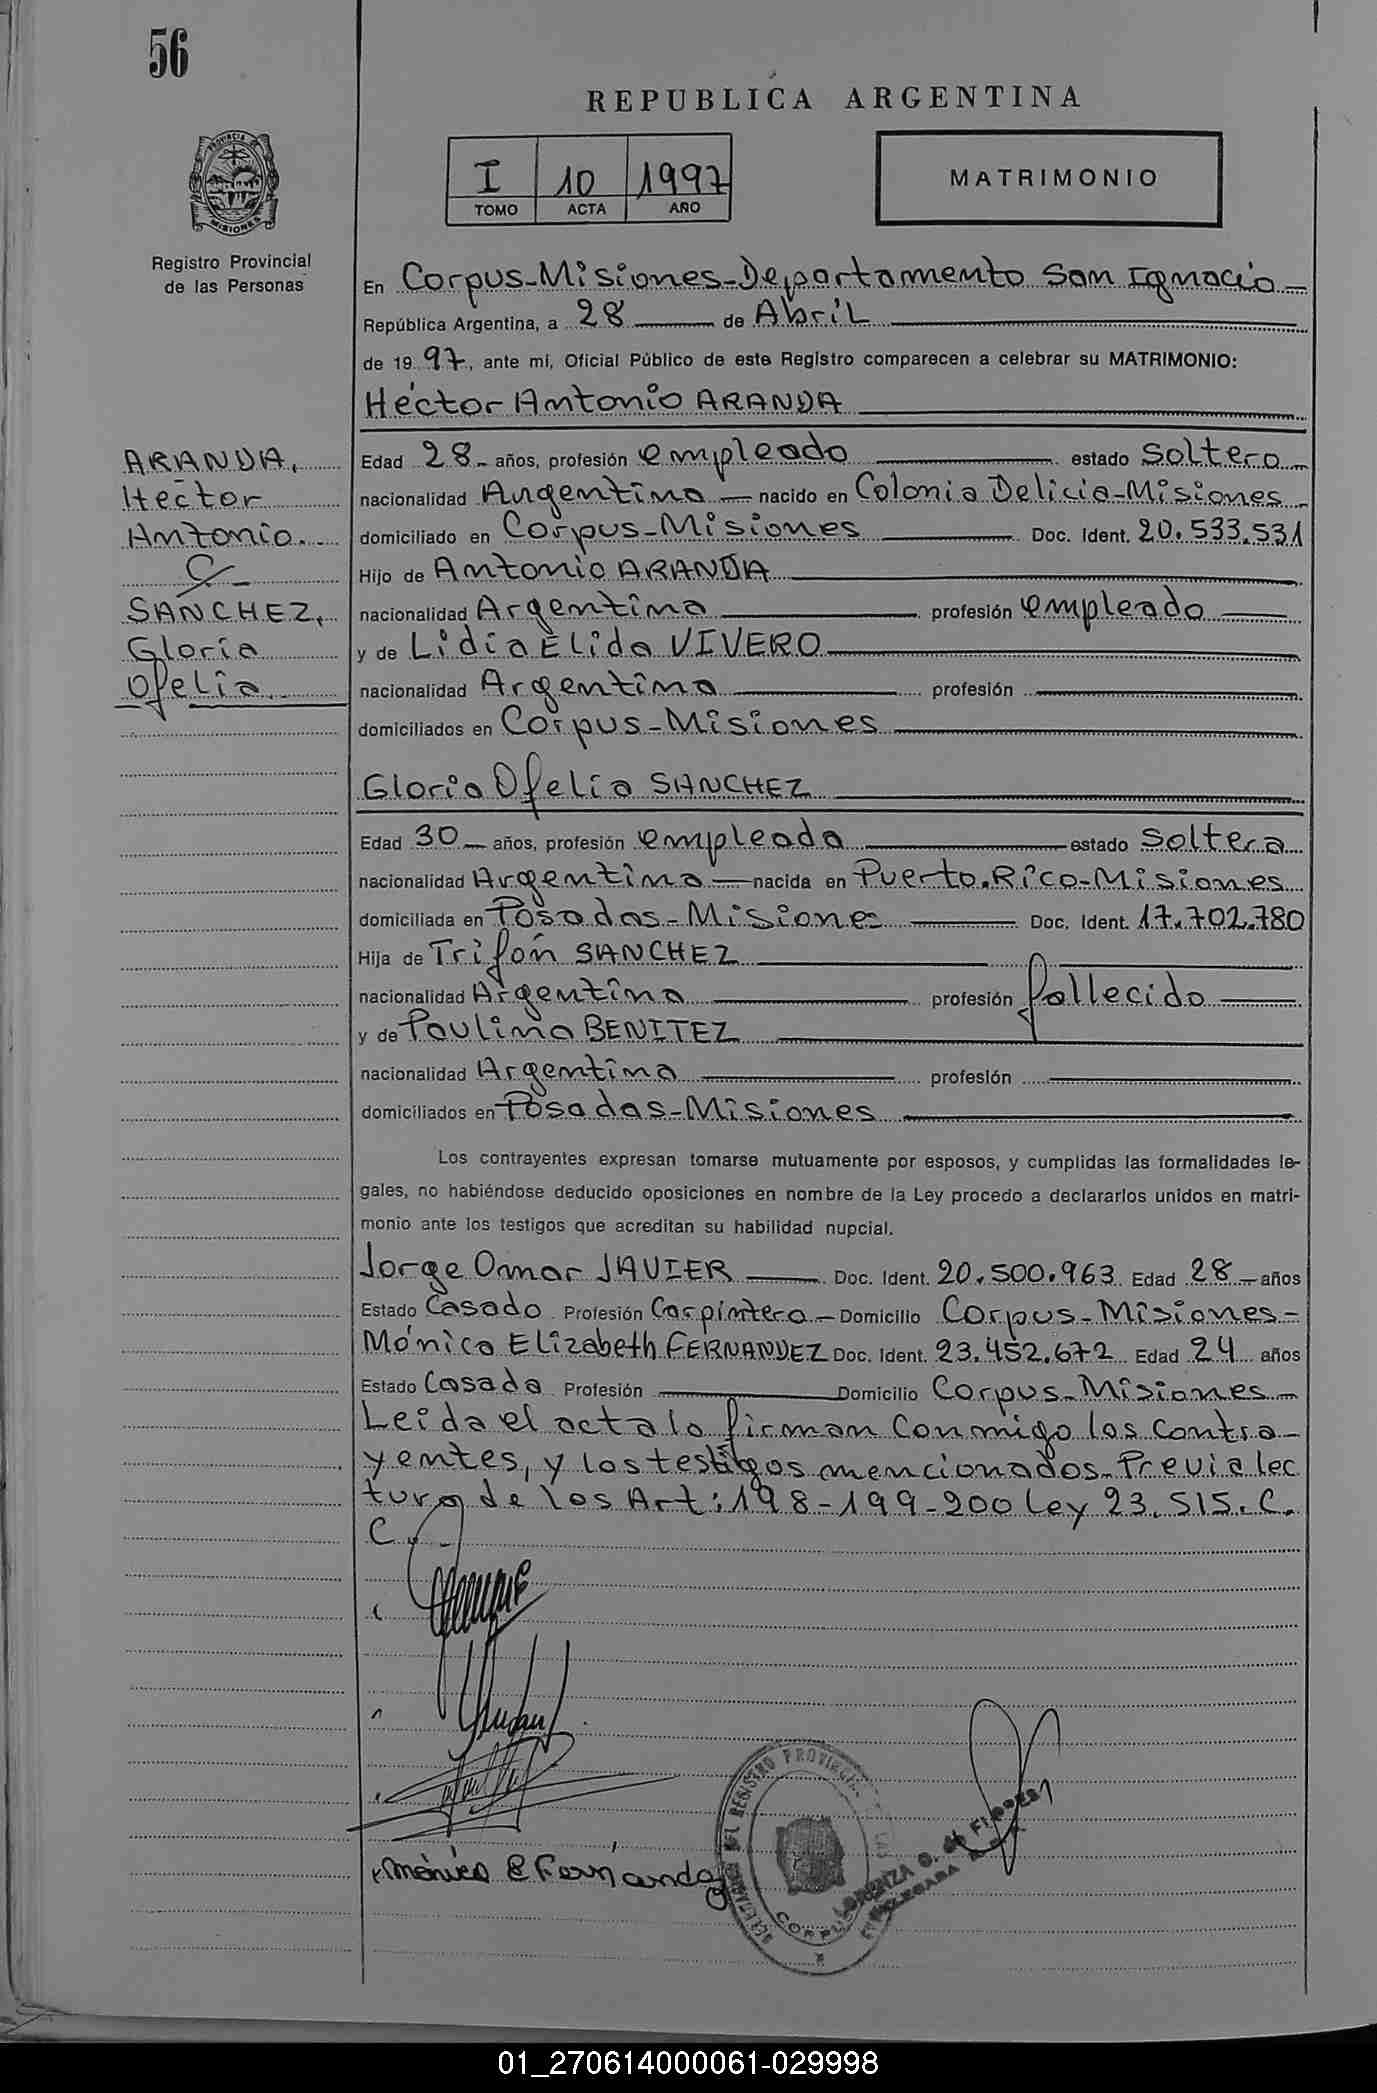 56
REPUBLICA ARGENTINA
PROVINCIA DE
MISIONES
I 10 1997
TOMO ACTA AÑO
MATRIMONIO
Registro Provincial
de las Personas
En Corpus-Misiones-Departamento San Ignacio-
República Argentina, a 28 de Abril
de 1997, ante mi, Oficial Público de este Registro comparecen a celebrar su MATRIMONIO:
Héctor Antonio ARANDA
ARANDA,
Héctor
Antonio.
C/-
SANCHEZ,
Gloria
Ofelia
Edad 28- años, profesión empleado estado Soltero
nacionalidad Argentina nacido en Colonia Delicia-Misiones
domiciliado en Corpus-Misiones Doc. Ident. 20.533.531
Hijo de Antonio ARANDA
nacionalidad Argentina profesión empleado
y de Lidia Elida VIVERO
nacionalidad Argentina profesión
domiciliados en Corpus-Misiones
Gloria Ofelia SANCHEZ
Edad 30 años, profesión empleada estado Soltera
nacionalidad Argentina nacida en Puerto.Rico-Misiones
domiciliada en Posadas-Misiones Doc. Ident. 17.702.780
Hija de Trifón SANCHEZ
nacionalidad Argentina profesión fallecido
y de Paulina BENITEZ
nacionalidad Argentina profesión
domiciliados en Posadas-Misiones
Los contrayentes expresan tomarse mutuamente por esposos, y cumplidas las formalidades le-
gales, no habiéndose deducido oposiciones en nombre de la Ley procedo a declararlos unidos en matri-
monio ante los testigos que acreditan su habilidad nupcial.
Jorge Omar JAVIER Doc. Ident. 20.500.963 Edad 28 años
Estado Casado Profesión Carpintero Domicilio Corpus-Misiones-
Mónica Elizabeth FERNANDEZ Doc. Ident. 23.452.672 Edad 24 años
Estado Casada Profesión Domicilio Corpus-Misiones
Leida el acta lo firman Conmigo los Contra-
yentes, y los testigos mencionados. Previa lec
tura de los Art: 198-199-200 Ley 23.515. C.
C.
Mónica E Fernandez
REGISTRO PROVINCIAL
CORPUS
LORENZA G. de FLORES
DELEGADA
01_270614000061-029998